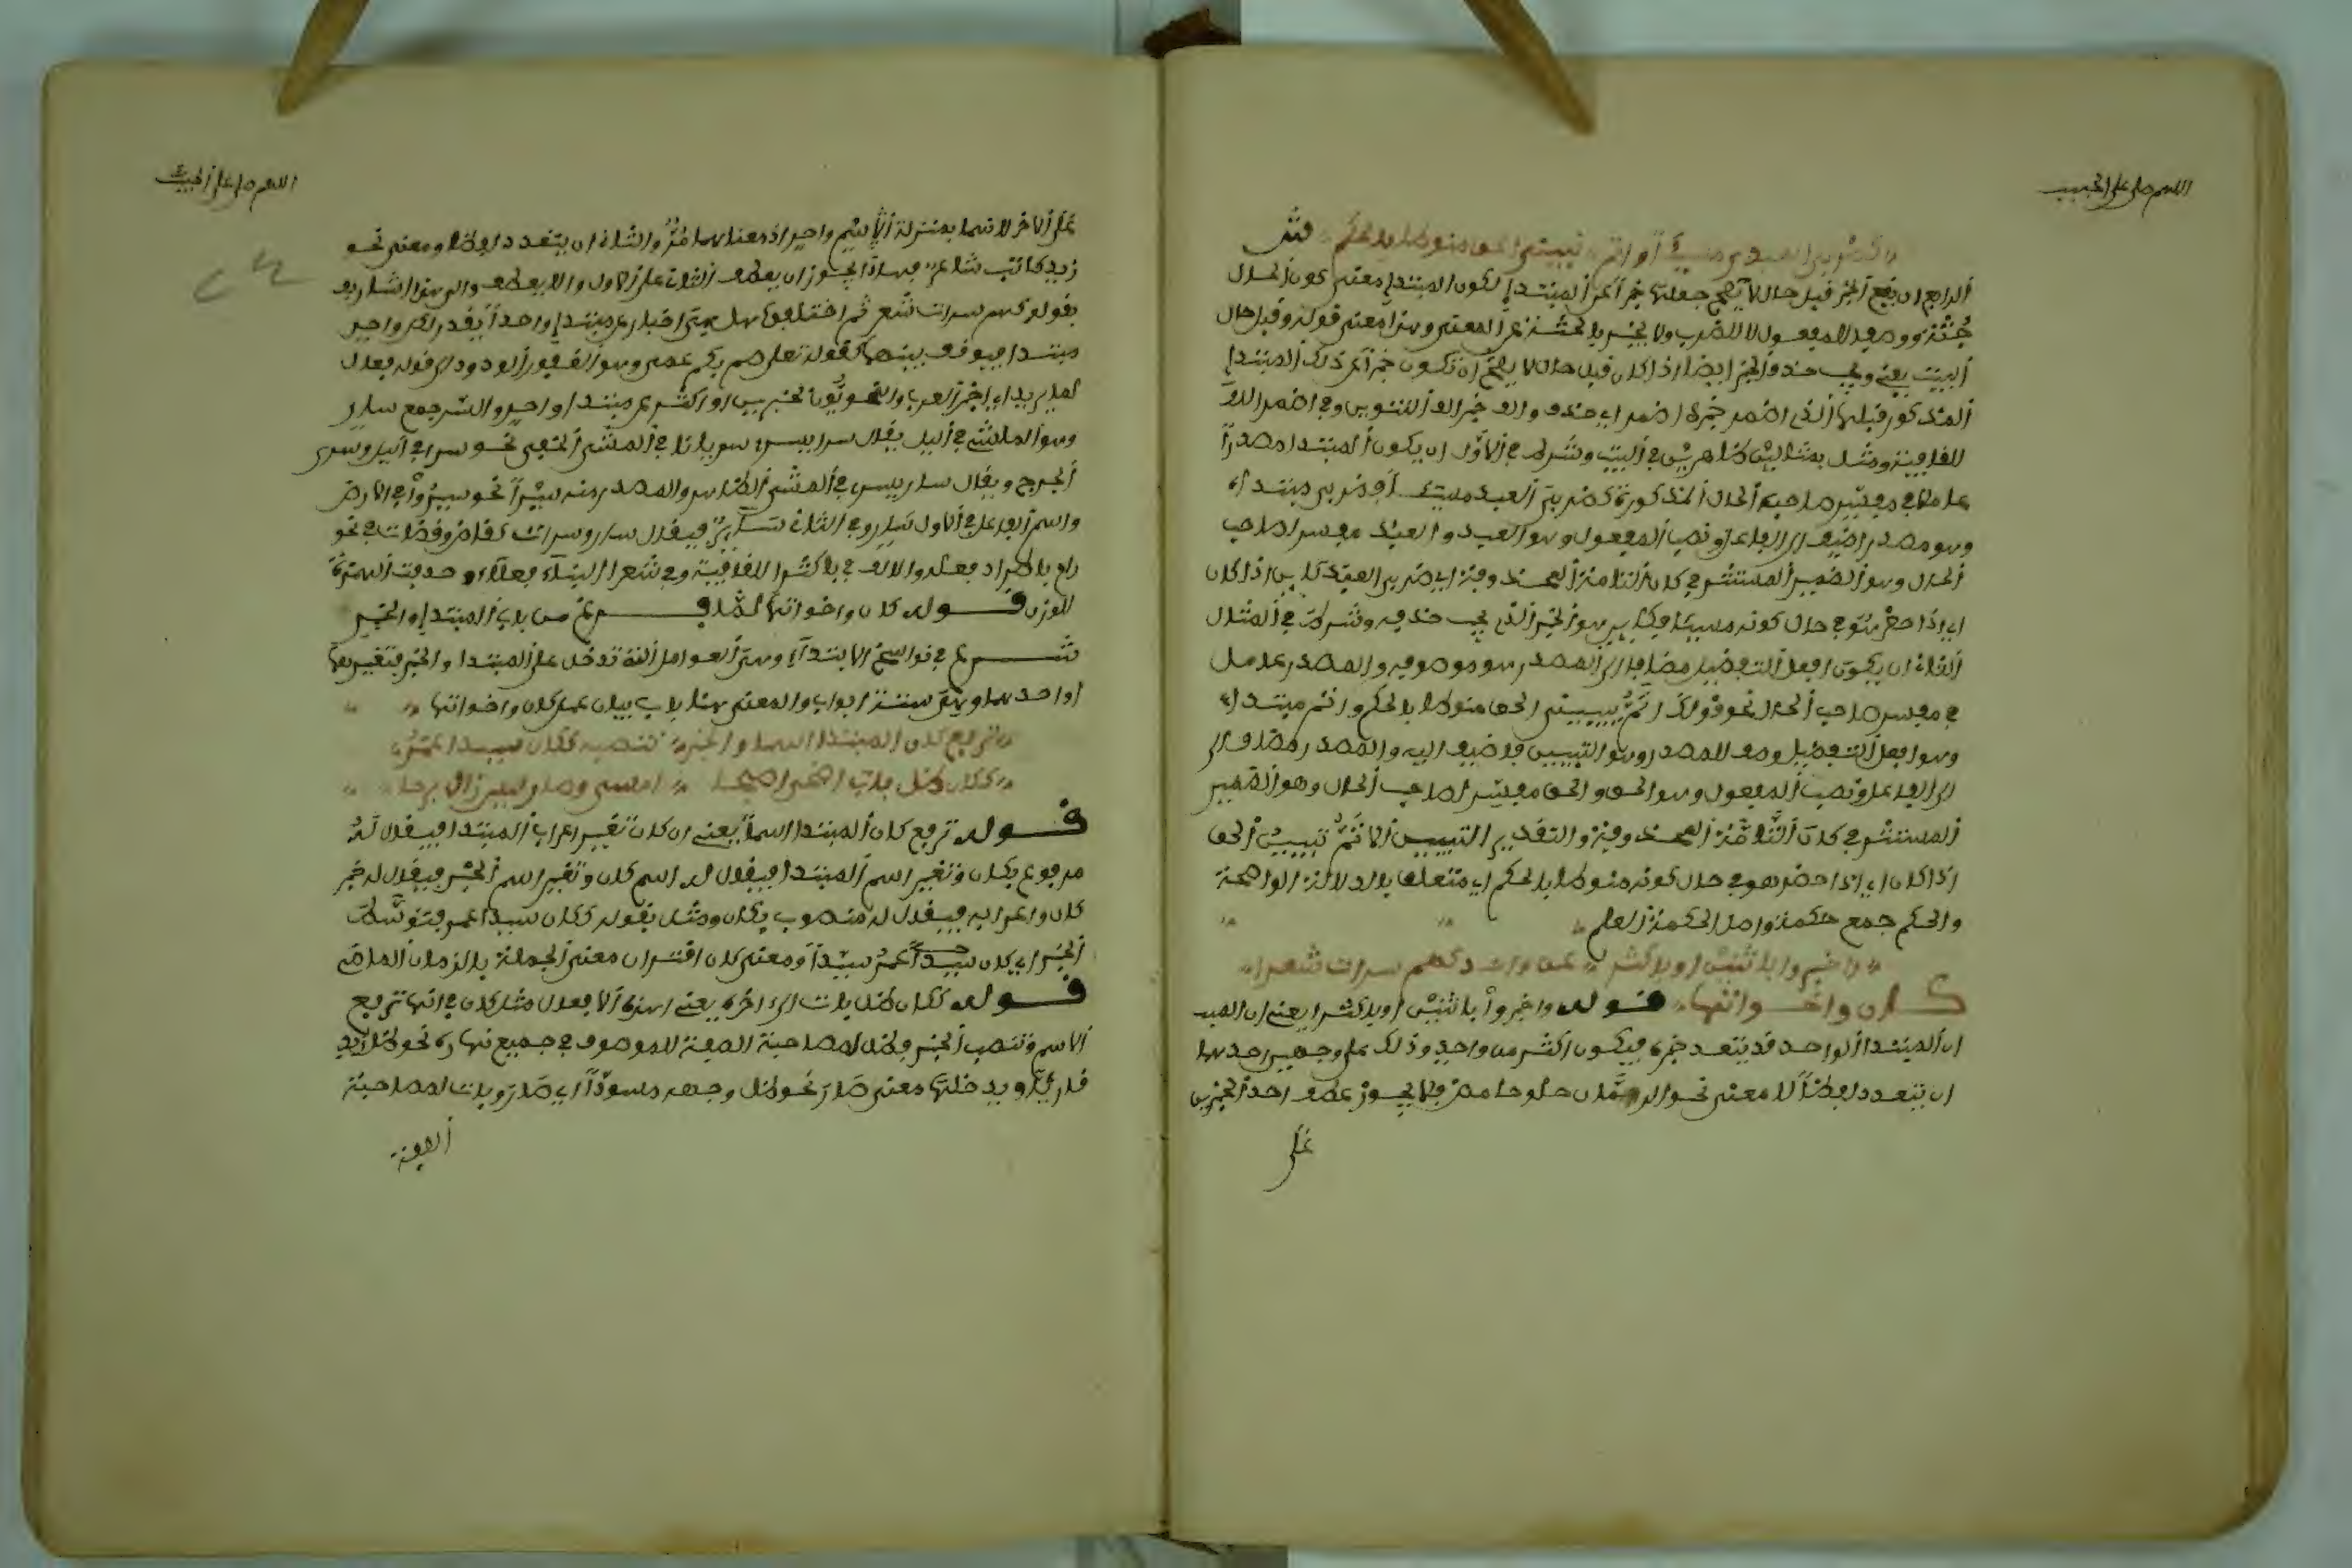 اللهم صل على الحبيب
كضربي العبد مسيئا واتم تبييني الحق منوطا بالحكم
الرابع ان يقع الخبر قبل حال لا يصح جعلها خبرا عن المبتدإ لكون المبتدإ معنى كون الحال
جثة ووصف للمفعول لا للضرب ولا يخبر بالجثة عن المعنى وهذا معنى قوله وقبل حال
البيت يعني ويجب حذف الخبر ايضا اذا كان قبل حال لا يصح ان تكون خبرا عن ذلك المبتدإ
المذكور قبلها الذي اضمر خبره اضمر اي حذف والف خبرا للتنوين وفي اضمرا
للقافية ومثل بمثالين ظاهرين في البيت وشرط في الاول ان يكون المبتدا مصدرا
عاملا في مفسر صاحب الحال المذكورة كضربي العبد مسيئا فضربي مبتدأ
وهو مصدر اضيف الى الفاعل ونصب المفعول وهو العبد والعبد مفسر لصاحب
الحال وهو الضمير المستتر في كان التامة المحذوفة اي ضربي العبد كاين اذا كان
اي اذا حضر هو في حال كونه مسيئا فكاين هو الخبر الذي يجب حذفه وشرط في المثال
الثاني ان يكون افعل التفضيل مضافا الى المصدر هو موصوفه والمصدر عامل
في مفسر صاحب الحال نحو قولك اتم تبييني الحق منوطا بالحكم واتم مبتدأ
وهو افعل التفضيل وصف للمصدر وهو التبيين واضيف اليه والمصدر مضاف الى
الى الفاعل ونصب المفعول وهو الحق والحق مفسر لصاحب الحال وهو الضمير
المستتر في كان التامة المحذوفة والتقدير التبيين الاتم تبييني الحق
اذا كان اي اذا حضر هو في حال كونه منوطا بالحكم اي متعلقا بالدلالة الواضحة
والحكم جمع حكمة واصل الحكمة العلم
واخبروا باثنين او باكثرا عن واحد كهم سراة شعرا
كان واخواتها قوله واخبروا باثنين او باكثرا يعني ان
ان المبتدا الواحد قد يتعدد خبره فيكون اكثر من واحد وذلك على وجهين احدهما
ان يتعدد لفظا لا معنى نحو الرمان حلو حامض فلا يجوز عطف احد الخبرين
على
اللهم صل على الحبيب
على الاخر لانهما بمنزلة اسم واحد اذ معناهما مز والثاني ان يتعدد لفظا ومعنى نحو
زيد كاتب شاعر فهذا يجوز ان يعطف الثاني على الاول والا يعطف والى هذا اشار
بقوله كهم سراة شعرا ثم اختلفوا هل هي اخبار عن مبتدإ واحد او يقدر لكل واحد
مبتدا فيوقف بينهما كقوله تعلى صم بكم عمي وهو الغفور الودود الى قوله فعال
لما يريد اي اخبر العرب والنحويون بخبرين او اكثر عن مبتدا واحد والسر جمع سار
وهو الماشي في اليل يقال سرا يسري سريانا في المشي الخفي نحو سرا في اليل وسرى
الجرح ويقال سار يسير في المشي الظاهر والمصدر منه سيرا نحو سيروا في الارض
واسم الفاعل في الاول سار وفي الثاني ساير فيقال سار وسراة كقاض وقضاة في نحو
رام ذو اطراد فعله والالف في باكثرا للقافية وفي شعرا البناء فعلاء وحذفت الهمزة
للوزن قوله كان واخواتها لما فرغ من باب المبتدإ والخبر
شرع في نواسخ الابتداء وهي العوامل التي تدخل على المبتدا والخبر فتغيرهما
او احدهما وهي ستة ابواب والمعنى هذا باب بيان عمل كان واخواتها
ترفع كان المبتدا اسما والخبر تنصبه ككان سيدا عمر
ككان ظل بات اضحى اصبحا امسى وصار ليس زال برحا
قوله ترفع كان المبتدا اسما يعني ان كان تغير اعراب المبتدا فيقال له
مرفوع بكان وتغير اسم المبتدا فيقال له اسم كان وتغير اسم الخبر فيقال له خبر
كان واعرابه فيقال له منصوب بكان ومثل بقوله ككان سيدا عمر فتوسط
الخبر اي كان عمر سيدا ومعنى كان اقتران معنى الجملة بالزمان الماضي
قوله ككان ظل بات الى اخره يعني هذه الافعال مثل كان في انها ترفع
الاسم وتنصب الخبر وظل لمصاحبة الصفة للموصوف في جميع نهاره نحو ظل زيد
قارئا ويدخلها معنى صار نحو ظل وجهه مسودا اي صار وبات لمصاحبة
الصفة